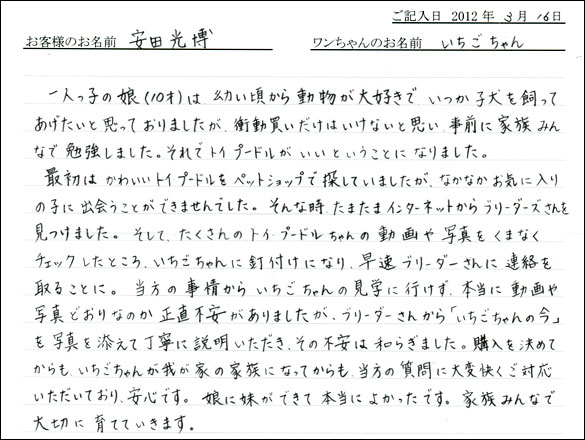 ご記入日 2012年 3月 16日
お客様のお名前 安田光博 ワンちゃんのお名前 いちごちゃん
一人っ子の娘(10才)は 幼い頃から動物が大好きで、いつか子犬を飼って
あげたいと思っておりましたが、衝動買いだけはいけないと思い、事前に家族みん
なで勉強しました。それでトイプードルがいいということになりました。
最初はかわいいトイプードルをペットショップで探していましたが、なかなかお気に入り
の子に出会うことができませんでした。そんな時、たまたまインターネットからブリーダーズさんを
見つけました。そして、たくさんのトイ・プードルちゃんの動画や写真をくまなく
チェックしたところ、いちごちゃんに釘付けになり、早速ブリーダーさんに連絡を
取ることに。当方の事情からいちごちゃんの見学に行けず、本当に動画や
写真どおりなのか正直不安がありましたが、ブリーダーさんから「いちごちゃんの今」
を写真を添えて丁寧に説明いただき、その不安は和らぎました。購入を決めて
からも、いちごちゃんが我が家の家族になってからも、当方の質問に大変快くご対応
いただいており、安心です。娘に妹ができて本当によかったです。家族みんなで
大切に育てていきます。